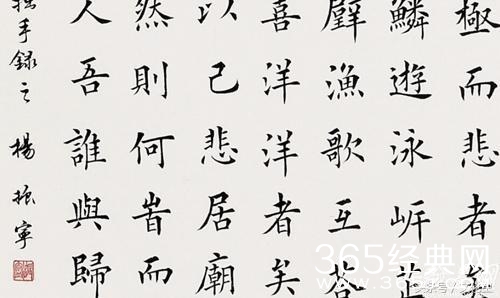 極而悲者矣
鱗遊泳岸芷
璧漁歌互荅
喜洋洋者矣
以己悲居廟
然則何旹而
人吾誰與歸
手錄之 楊振寧
365经典网